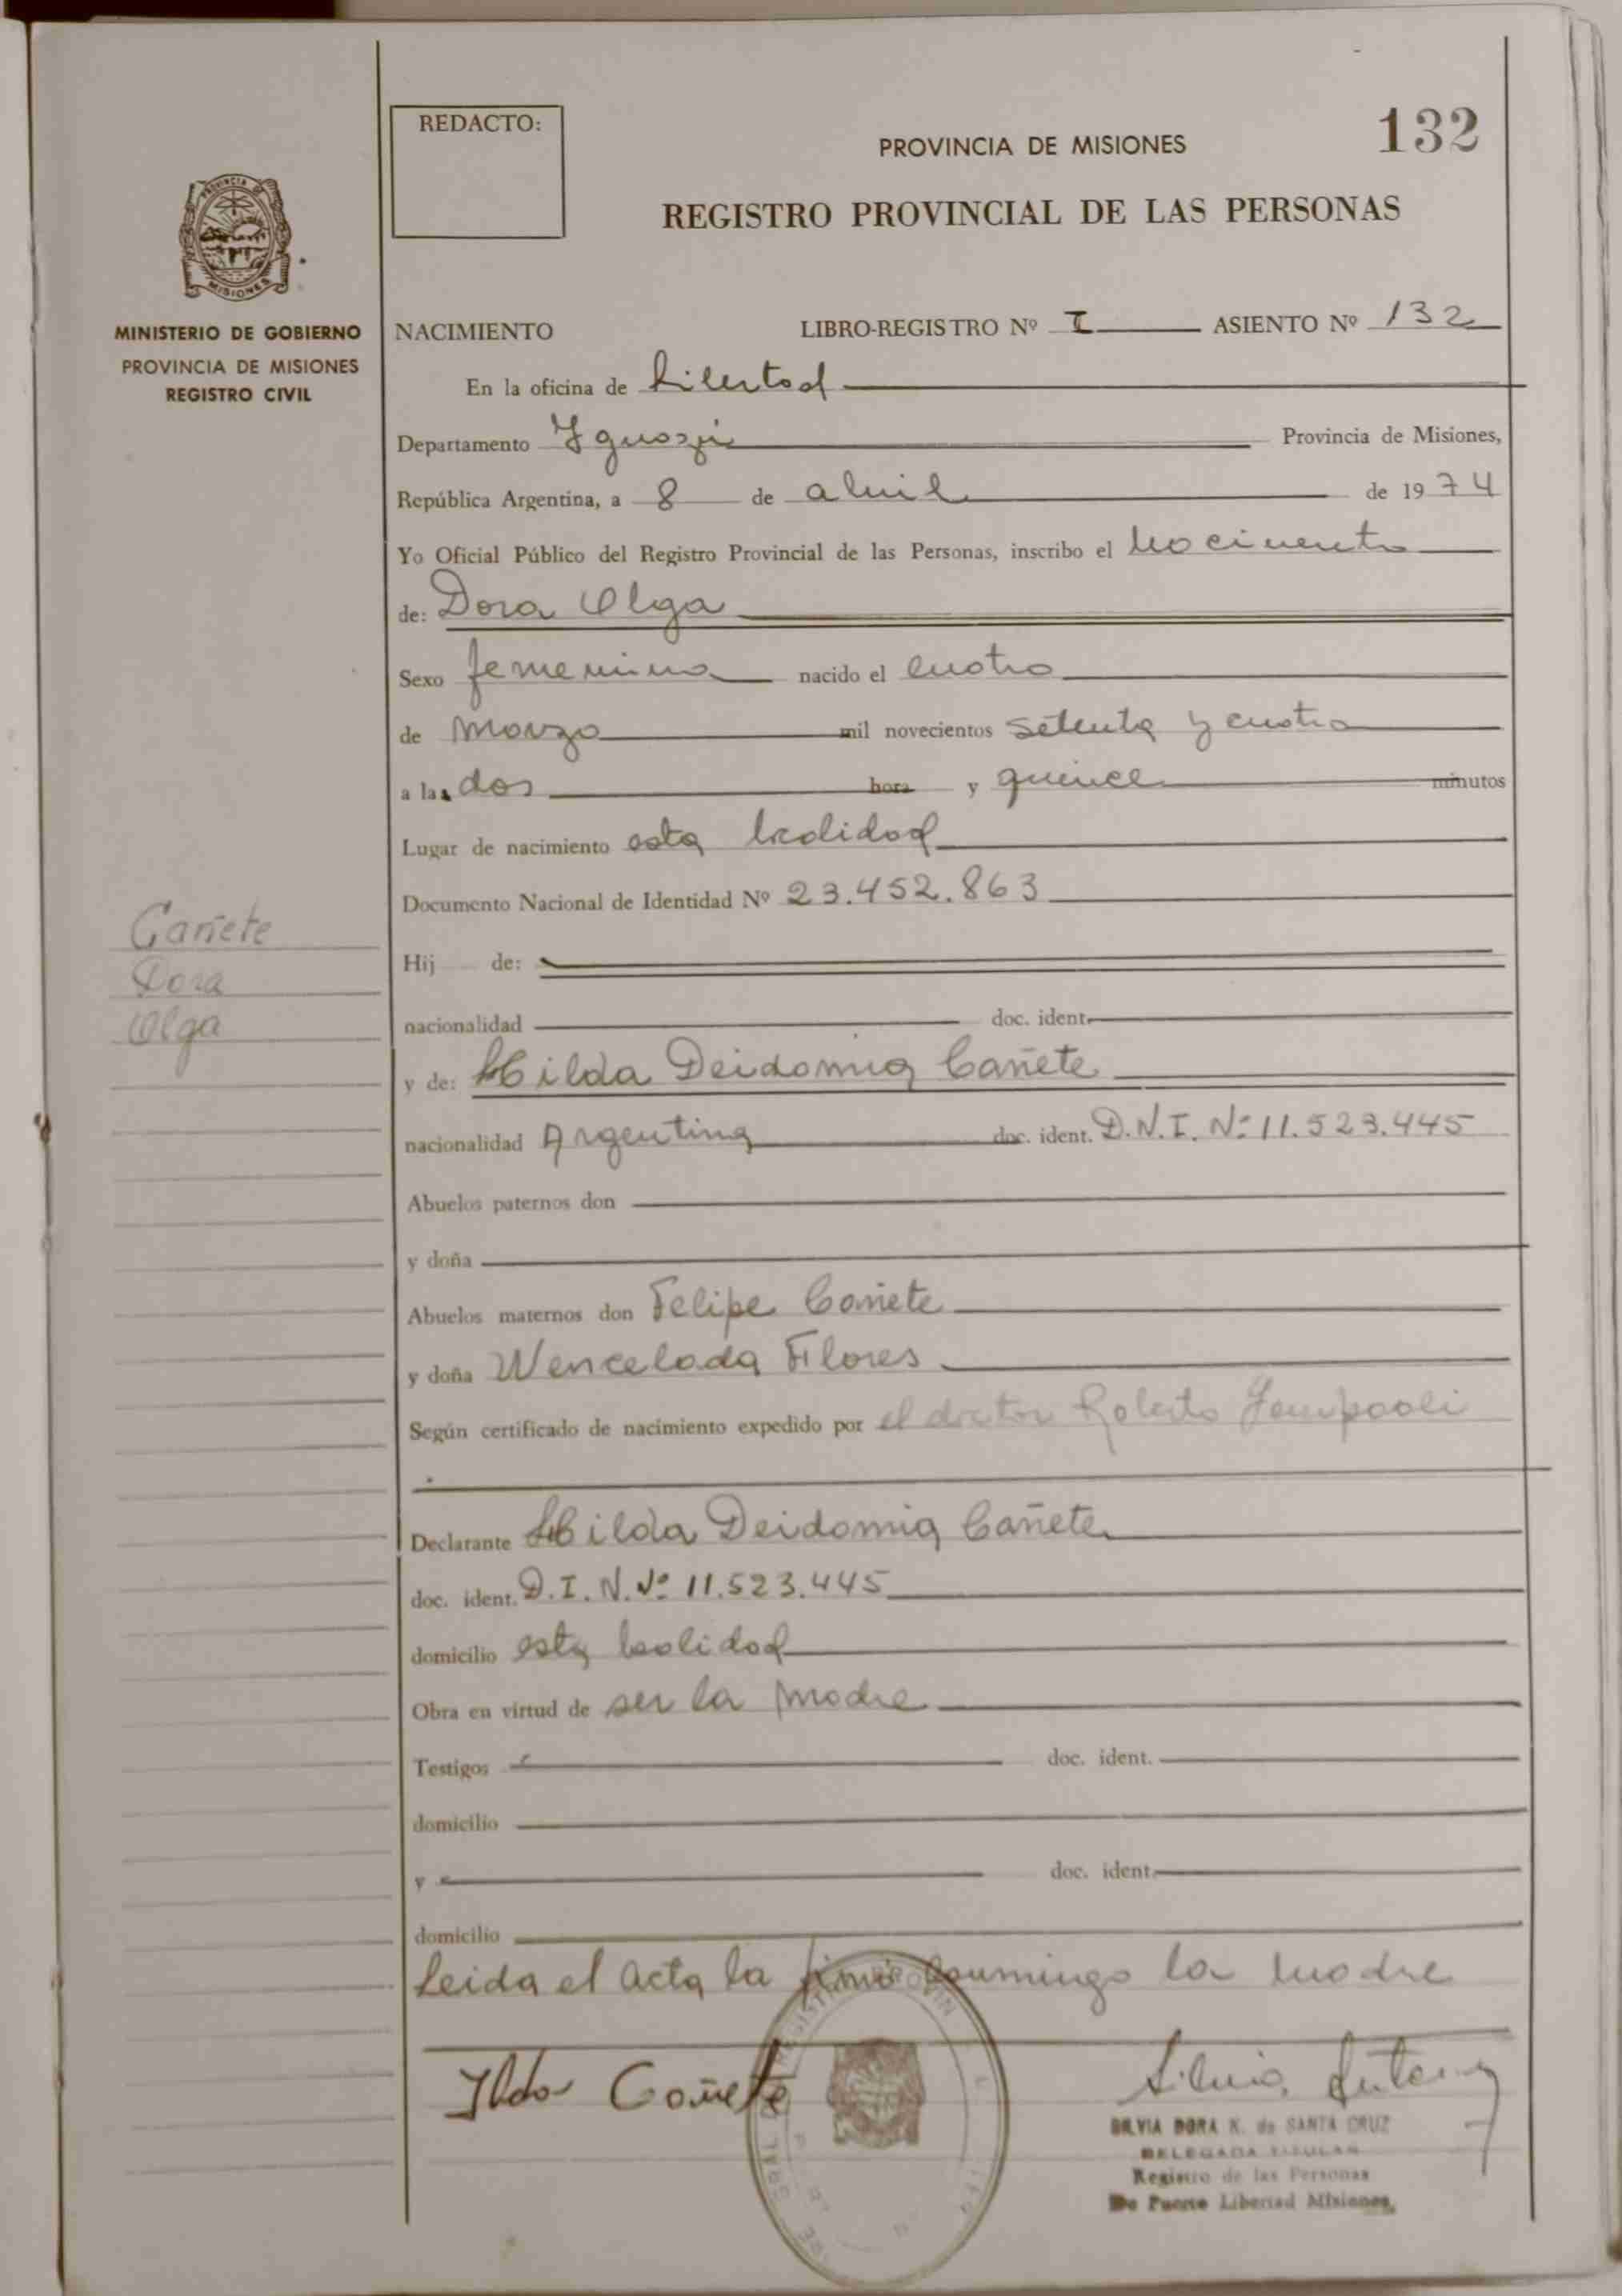 REDACTO:
PROVINCIA DE MISIONES
132
REGISTRO PROVINCIAL DE LAS PERSONAS
PROVINCIA DE
MISIONES
MINISTERIO DE GOBIERNO
PROVINCIA DE MISIONES
REGISTRO CIVIL
NACIMIENTO LIBRO-REGISTRO Nº I ASIENTO Nº 132
En la oficina de Libertad
Departamento Iguazú Provincia de Misiones,
República Argentina, a 8 de abril de 1974
Yo Oficial Público del Registro Provincial de las Personas, inscribo el nacimiento
de: Dora Olga
Sexo femenino nacido el cuatro
de marzo mil novecientos setenta y cuatro
a las dos hora y quince minutos
Lugar de nacimiento esta localidad
Documento Nacional de Identidad Nº 23.452.863
Cañete
Dora
Olga
Hij de:
nacionalidad doc. ident.
y de: Hilda Deidamia Cañete
nacionalidad Argentina doc. ident. D.N.I. Nº 11.523.445
Abuelos paternos don
y doña
Abuelos maternos don Felipe Cañete
y doña Wencelada Flores
Según certificado de nacimiento expedido por el doctor Roberto
Declarante Hilda Deidamia Cañete
doc. ident. D.I.N. Nº 11.523.445
domicilio esta localidad
Obra en virtud de ser la madre
Testigos doc. ident.
domicilio
y doc. ident.
domicilio
Leida el acta la firmó conmigo la madre
Ilda Cañete
SILVIA DORA K. de SANTA CRUZ
DELEGADA TITULAR
Registro de las Personas
De Puerto Libertad Misiones